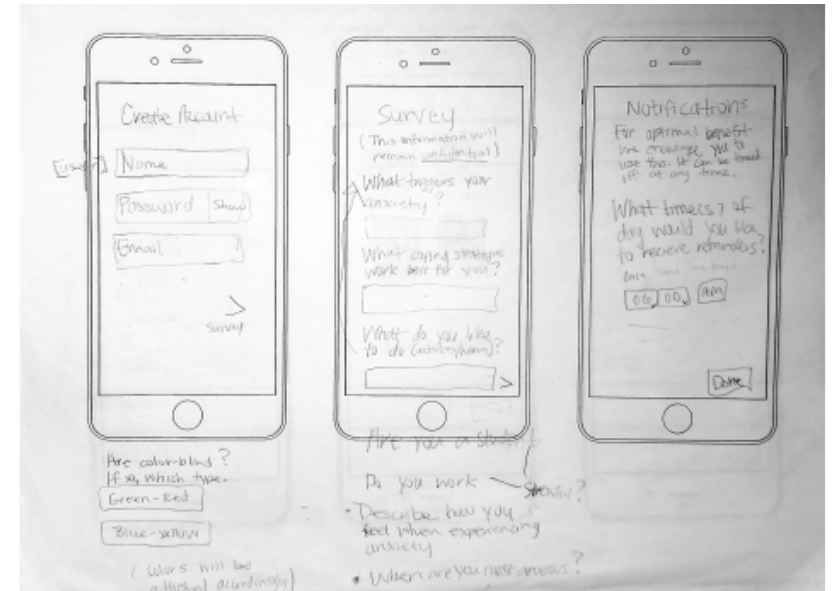 Create Account
[user]
Name
Password
Show
Email
>
Survey
Are color-blind?
If so, which type.
Green-Red
Blue-yellow
(Colors will be
adjusted accordingly)
Survey
(This information will
remain confidential)
What triggers your
anxiety?
What coping strategies
work best for you?
What do you like
to do
>
Are you a student
Do you work
Stressful?
• Describe how you
feel when experiencing
anxiety
• When are you most anxious?
Notifications
For optimal benefit
we encourage you to
use this. It can be turned
off at any time.
What time(s) of
day would you like
to recieve reminders?
once
06 00 AM
Done